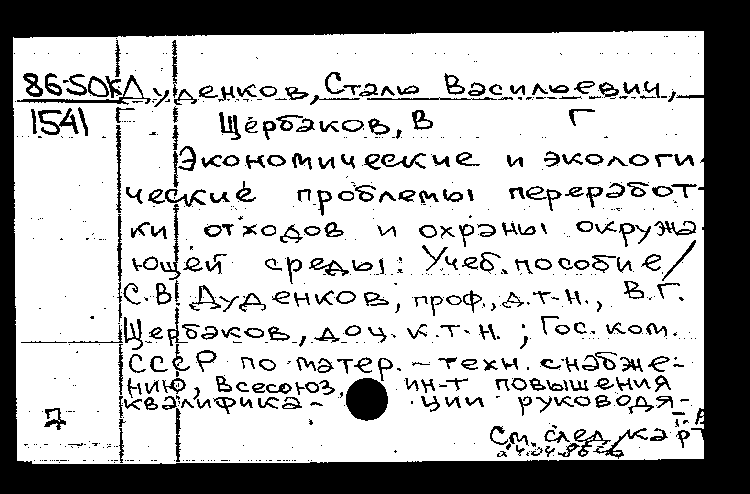 86-50К Дуденков, Сталь Васильевич,
1541 Щербаков, В Г
Экономические и экологи-
ческие проблемы переработ-
ки отходов и охраны окружа-
ющей среды: Учеб. пособие/
С.В. Дуденков, проф., д.т.н., В.Г.
Щербаков, доц. к.т.н. ; Гос. ком.
СССР по матер. - техн. снабже-
нию, Всесоюз. ин-т повышения
квалифика- ции руководя-
Д
См. след. карт
24.04.86